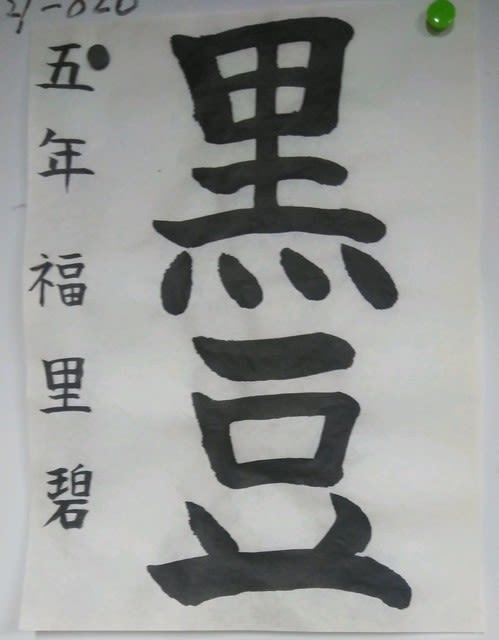 黒豆
五年 福里碧